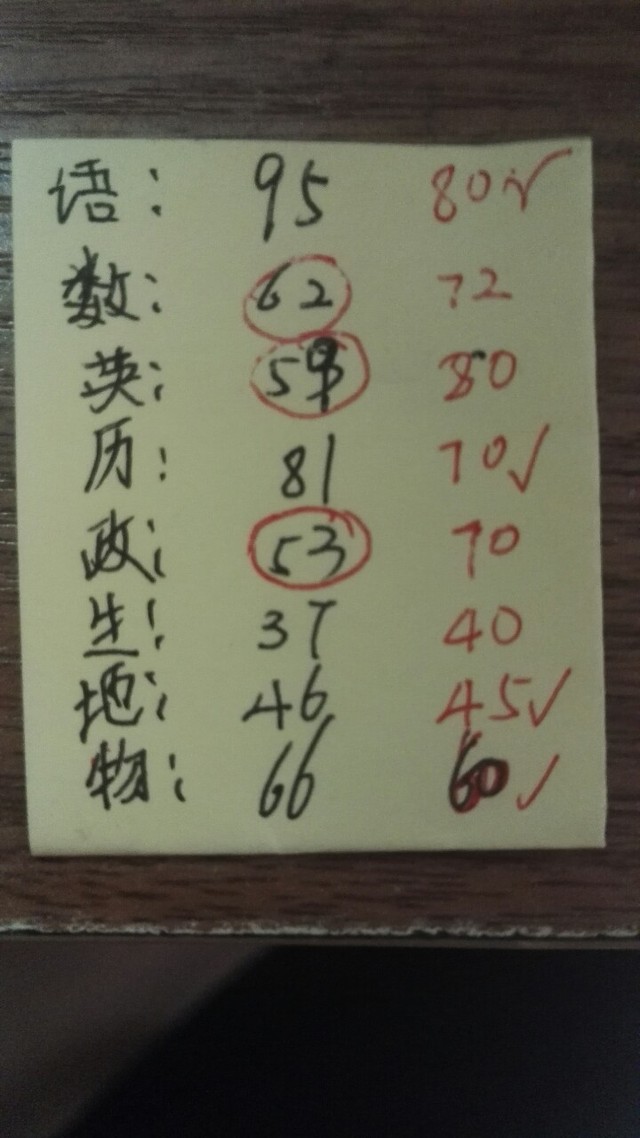 语: 95 80√
数: 62 72
英: 80
历: 81 70√
政: 53 70
生: 37 40
地: 46 45√
物: 66 60√